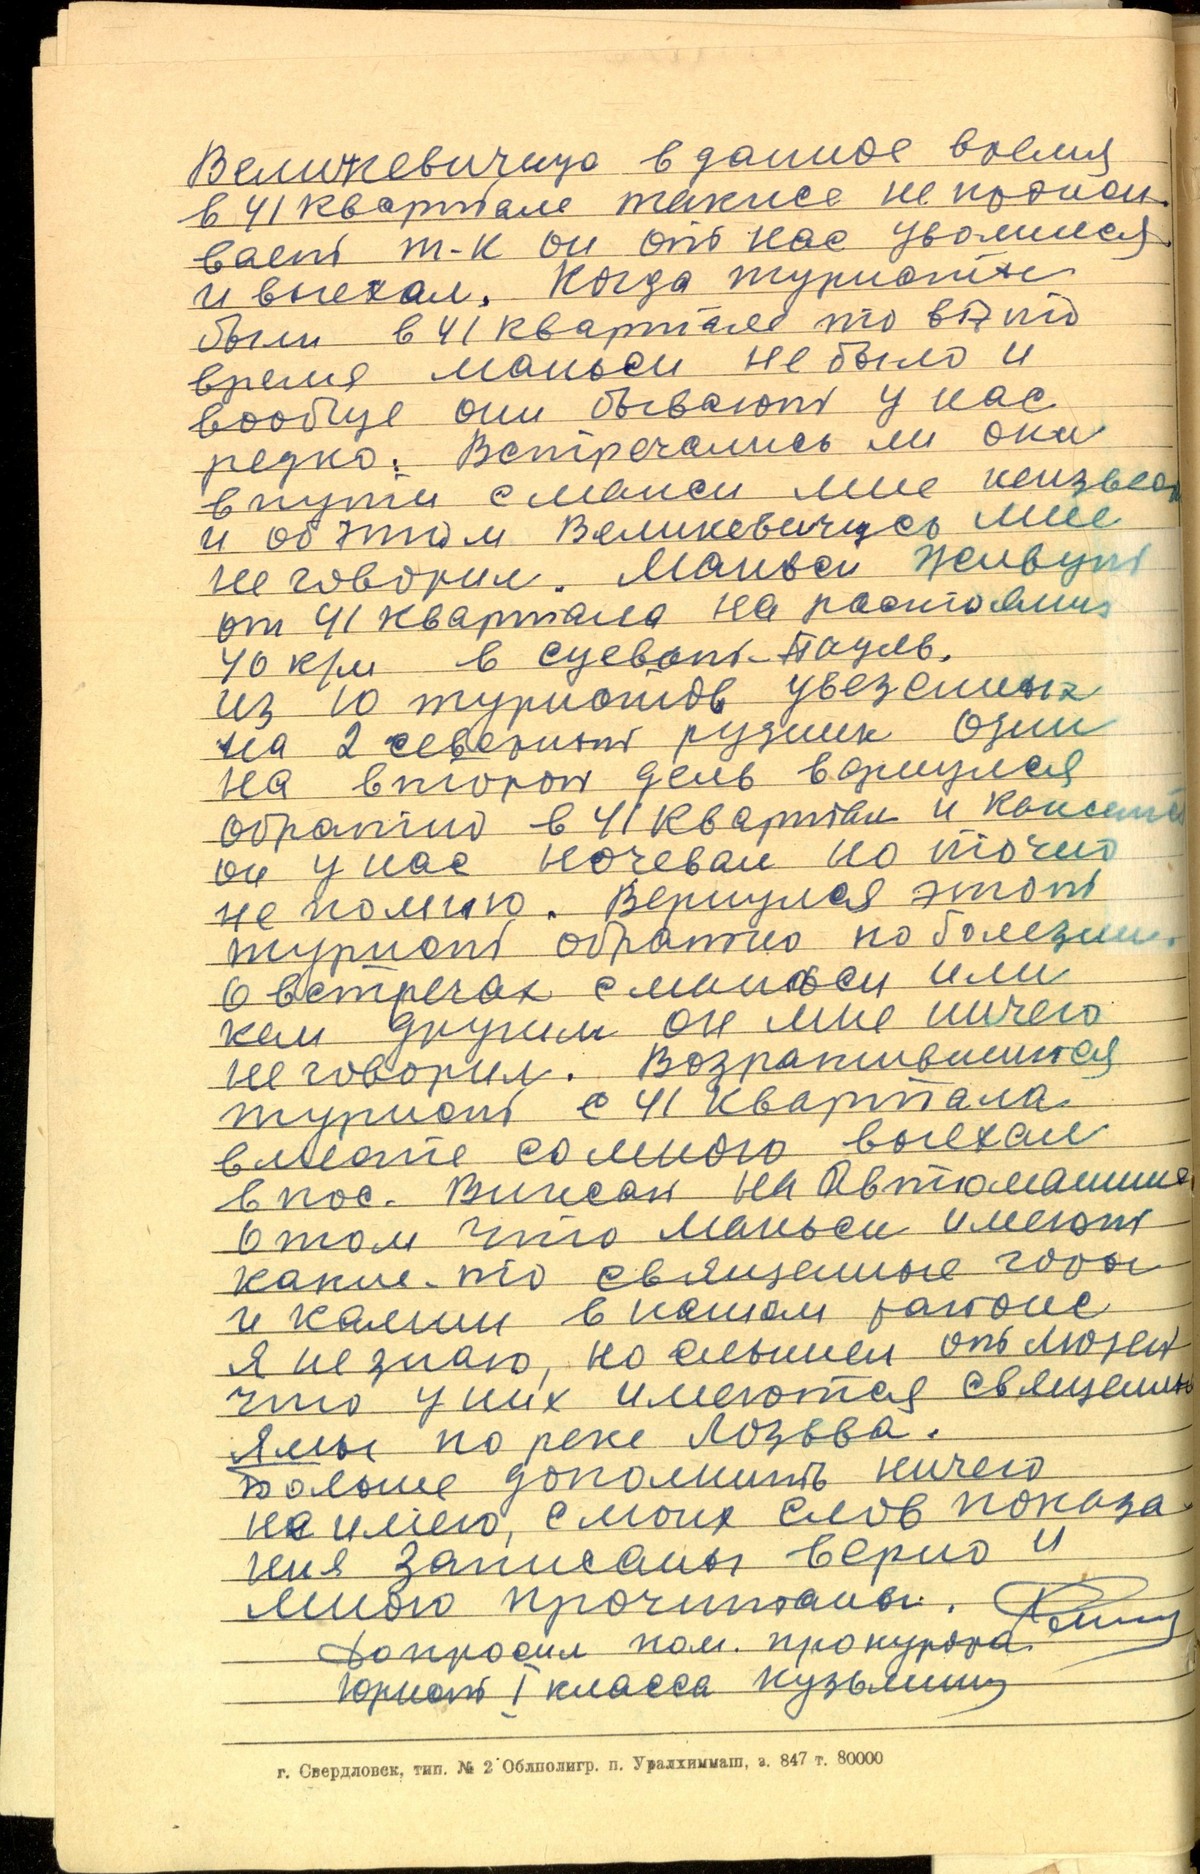 Великевичуса в данное время
в 41 квартале также не прожи-
вает т-к он от нас уволился
и выехал. Когда туристы
были в 41 квартале то в это
время маньси не было и
вообще они бывают у нас
редко. Встречались ли они
в пути с манси мне неизвест
и об этом Великевичусь мне
не говорил. Маньси живут
от 41 квартала на растоянии
40 к/м в суеват-Пауль.
из 10 туристов увезенных
на 2 северный рудник один
на второй день вернулся
обратно в 41 квартал и кажется
он у нас ночевал но точно
не помню. Вернулся этот
турист обратно по болезни.
О встречах с маньси или
кем другим он мне ничего
не говорил. Возратившийся
турист с 41 квартала
вместе со мною выехал
в пос. Вижай на Автомашине
О том что маньси имеют
какие-то священные горы
и камни в нашем районе
я не знаю, но слышал от людей
что у них имеются священны
ямы по реке Лозьва.
Больше дополнить ничего
не имею, с моих слов показа
ния записаны верно и
мною прочитаны.
Допросил пом. прокурора
Юрист I класса Кузьминых
г. Свердловск, тип. № 2 Облполигр. п. Уралхиммаш, з. 847 т. 80000